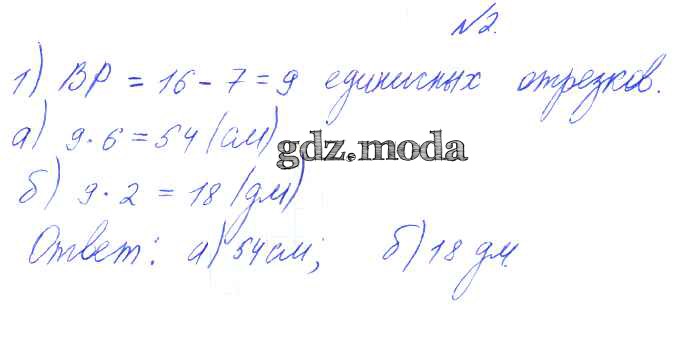 №2.
1) BP = 16 - 7 = 9 единичных отрезков.
а) 9 · 6 = 54 (см)
gdz.moda
б) 9 · 2 = 18 (дм)
Ответ: а) 54 см; б) 18 дм.